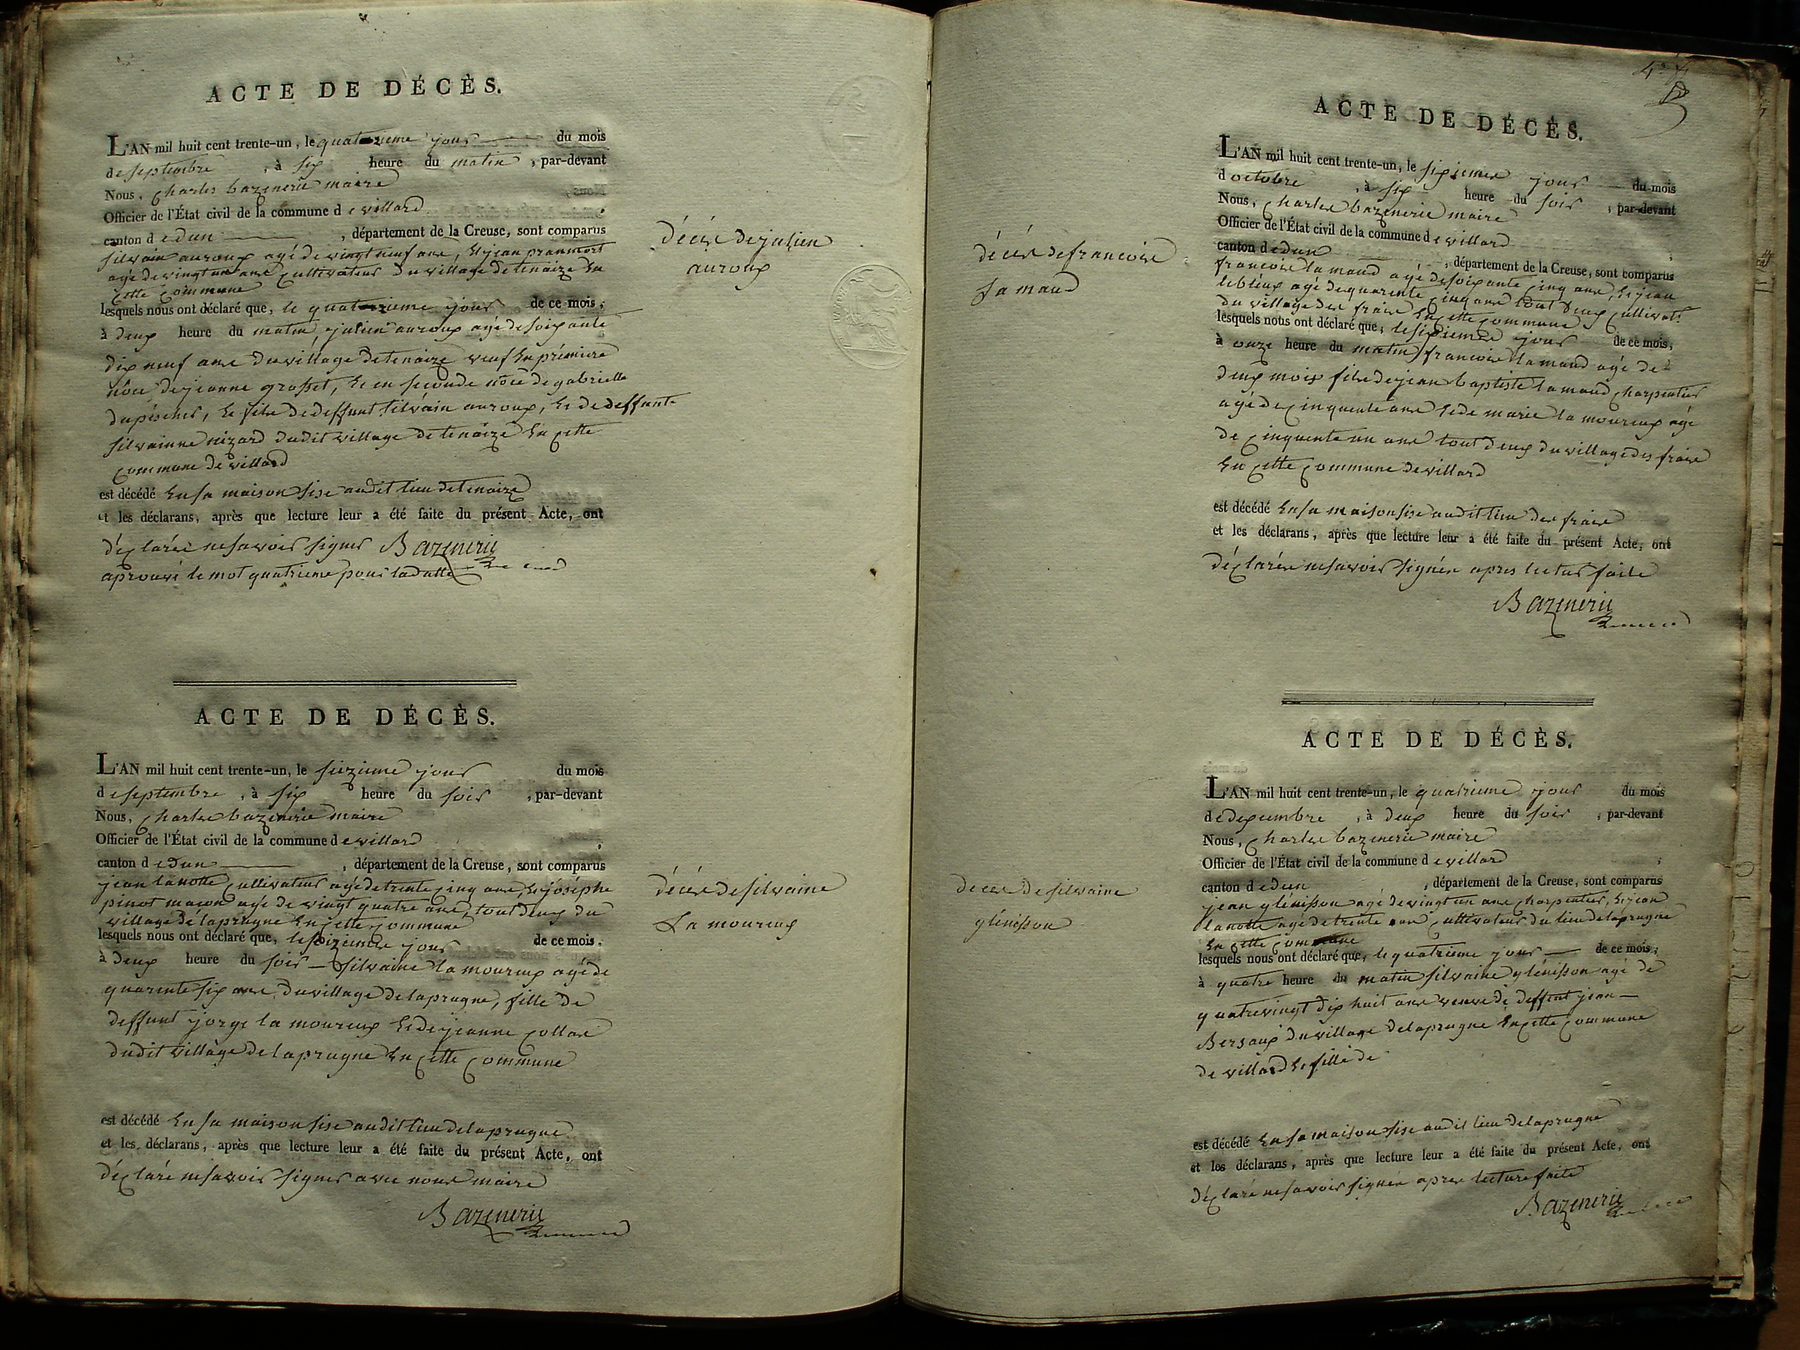 ACTE DE DÉCÈS.
L'AN mil huit cent trente-un, le quatrieme jour du mois
de septembre, à six heure du matin, par-devant
Nous, charles bazenerie maire
Officier de l'État civil de la commune de villard
canton de dun, département de la Creuse, sont comparus
silvain auroux agé de vingt neuf ans, et jean
agé de vingt un ans cultivateur du village de tenaize en
cette commune
lesquels nous ont déclaré que, le quatrieme jour de ce mois,
à deux heure du matin julien auroux agé de soixante
dix neuf ans du village de tenaize veuf en premiere
nôce de jeanne grosset, et en seconde nôce de gabrielle
dupéchier, et fils de deffunt silvain auroux, et de deffunte
silvainne nizard dudit village de tenaize en cette
commune de villard
est décédé en sa maison sise audit lieu de tenaize
et les déclarans, après que lecture leur a été faite du présent Acte, ont
déclarée ne savoir signer Bazenerie
aprouvé le mot quatrieme pour la datte
décès de julien
auroux
ACTE DE DÉCÈS.
L'AN mil huit cent trente-un, le siezieme jour du mois
de septembre, à six heure du soir, par-devant
Nous, charles bazenerie maire
Officier de l'État civil de la commune de villard
canton de dun, département de la Creuse, sont comparus
jean lanotte cultivateur agé de trente cinq ans et joséphe
pinot maçon agé de vingt quatre ans, tout deux du
village de laprugne en cette commune
lesquels nous ont déclaré que, le sizieme jour de ce mois,
à deux heure du soir silvaine lamoureux agé de
quarente six ans du village de laprugne, fille de
deffunt jorge lamoureux et de jeanne collas
dudit village de laprugne en cette commune
est décédé en sa maison sise audit lieu de laprugne
et les déclarans, après que lecture leur a été faite du présent Acte, ont
déclaré ne savoir signer avec nous maire
Bazenerie
décès de silvaine
Lamoureux
ACTE DE DÉCÈS.
L'AN mil huit cent trente-un, le sixiemes jour du mois
d octobre, à six heure du soir, par-devant
Nous, charles bazenerie maire
Officier de l'État civil de la commune de villard
canton de dun, département de la Creuse, sont comparus
francois lamaud agé de soixante cinq ans, et jean
lebleux agé de quarente cinq ans tout deux cultivat.
du village des frais en cette commune
lesquels nous ont déclaré que, le sixieme jour de ce mois,
à onze heure du matin francoise lamaud agé de
deux mois fils de jean baptiste lamaud charpentier
agé de cinquente ans et de marie lamoureux agé
de cinquente un ans tout deux du village des frais
en cette commune de villard
est décédé en sa maison sise audit lieu des frais
et les déclarans, après que lecture leur a été faite du présent Acte, ont
déclarée ne savoir signér apres lectur faite
Bazenerie
décès de francoise
Lamaud
ACTE DE DÉCÈS.
L'AN mil huit cent trente-un, le quatrieme jour du mois
de dexembre, à deux heure du soir, par-devant
Nous, charles bazenerie maire
Officier de l'État civil de la commune de villard
canton de dun, département de la Creuse, sont comparus
jean glénisson agé de vingt un ans charpentier, et jean
lanotte agé de trente ans cultivateur du lieu de laprugne
en cette commune
lesquels nous ont déclaré que, le quatrieme jour de ce mois,
à quatre heure du matin silvaine glénisson agé de
quatrevingt dix huit ans veuve de deffunt jean
Bersaux du village de laprugne en cette commune
de villard et fille de
est décédé en sa maison sise audit lieu de laprugne
et les déclarans, après que lecture leur a été faite du présent Acte, ont
déclaré ne savoir signer apres lecture faite
Bazenerie
deces de silvaine
glénisson